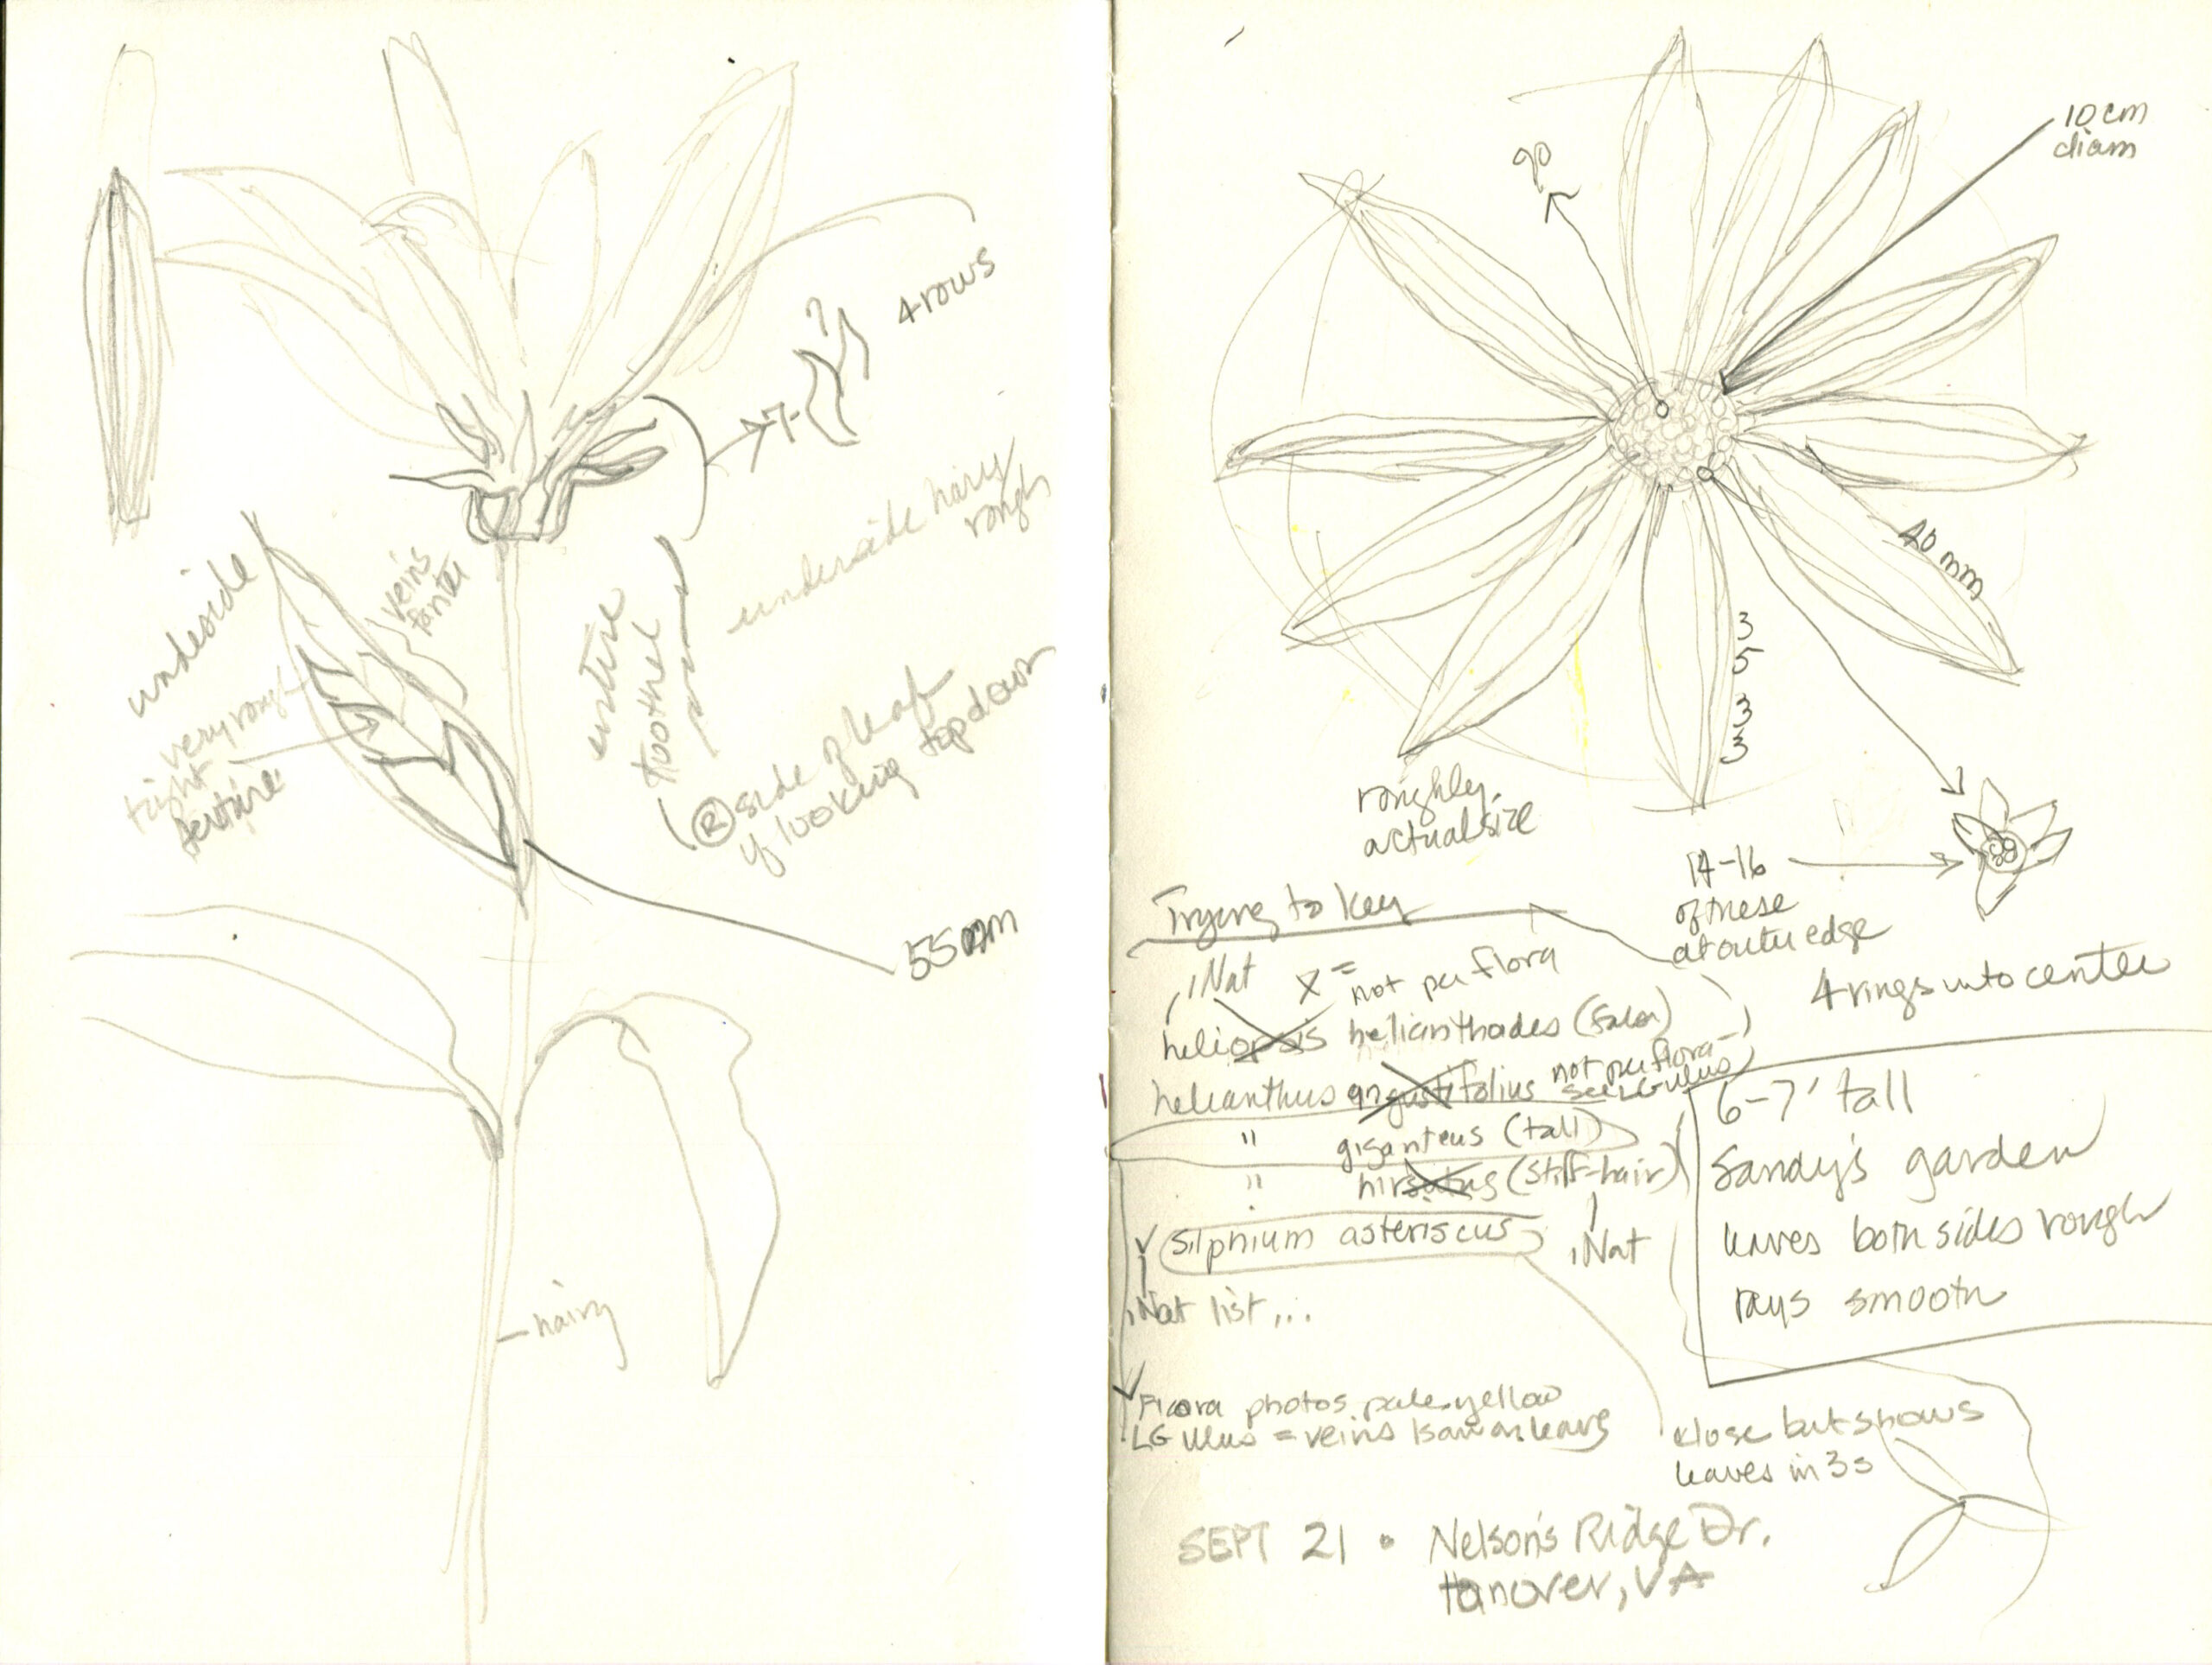 4 rows
7-
?
underside hairy
rough
underside
veins
fainter
very rough
tight
texture
entire
toothed
(R) side of leaf
if looking top down
55 mm
hairy
10 cm
diam
90
40 mm
3
5
3
3
roughly
actual size
14-16
of these
at outer edge
4 rings into center
Trying to key
iNat X = not per flora
heliopsis helianthoides (False)
helianthus angustifolius not per flora-
see LG illus
" giganteus (tall)
" hirsutus (stiff-hair)
✓ Silphium asteriscus
iNat
iNat list...
✓ Flora photos pale yellow
LG illus = veins leaves
6-7' tall
Sandy's garden
leaves both sides rough
rays smooth
close but shows
leaves in 3s
SEPT 21 • Nelson's Ridge Dr.
Hanover, VA